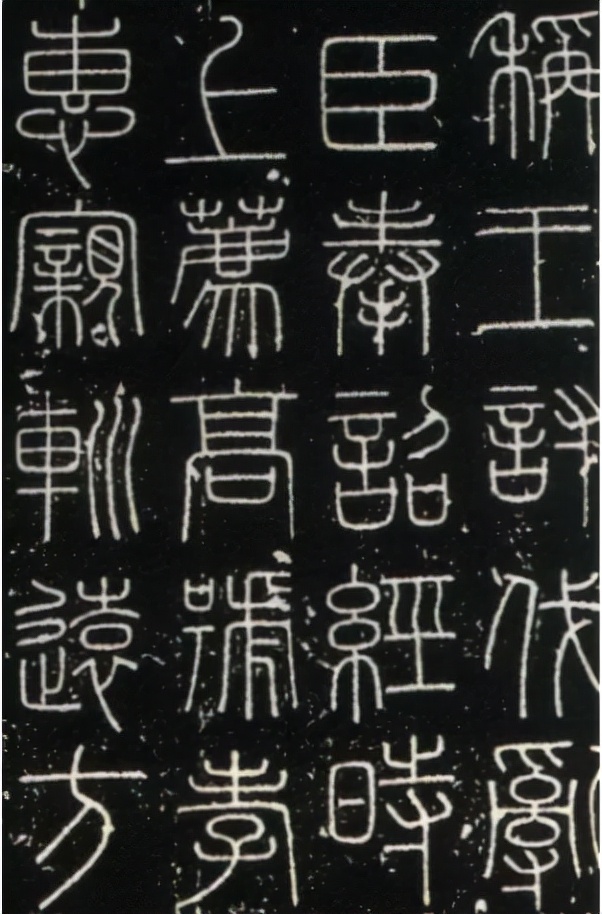 稱王討伐亂
臣奉詔經時
上薦高號孝
惠寴巡遠方